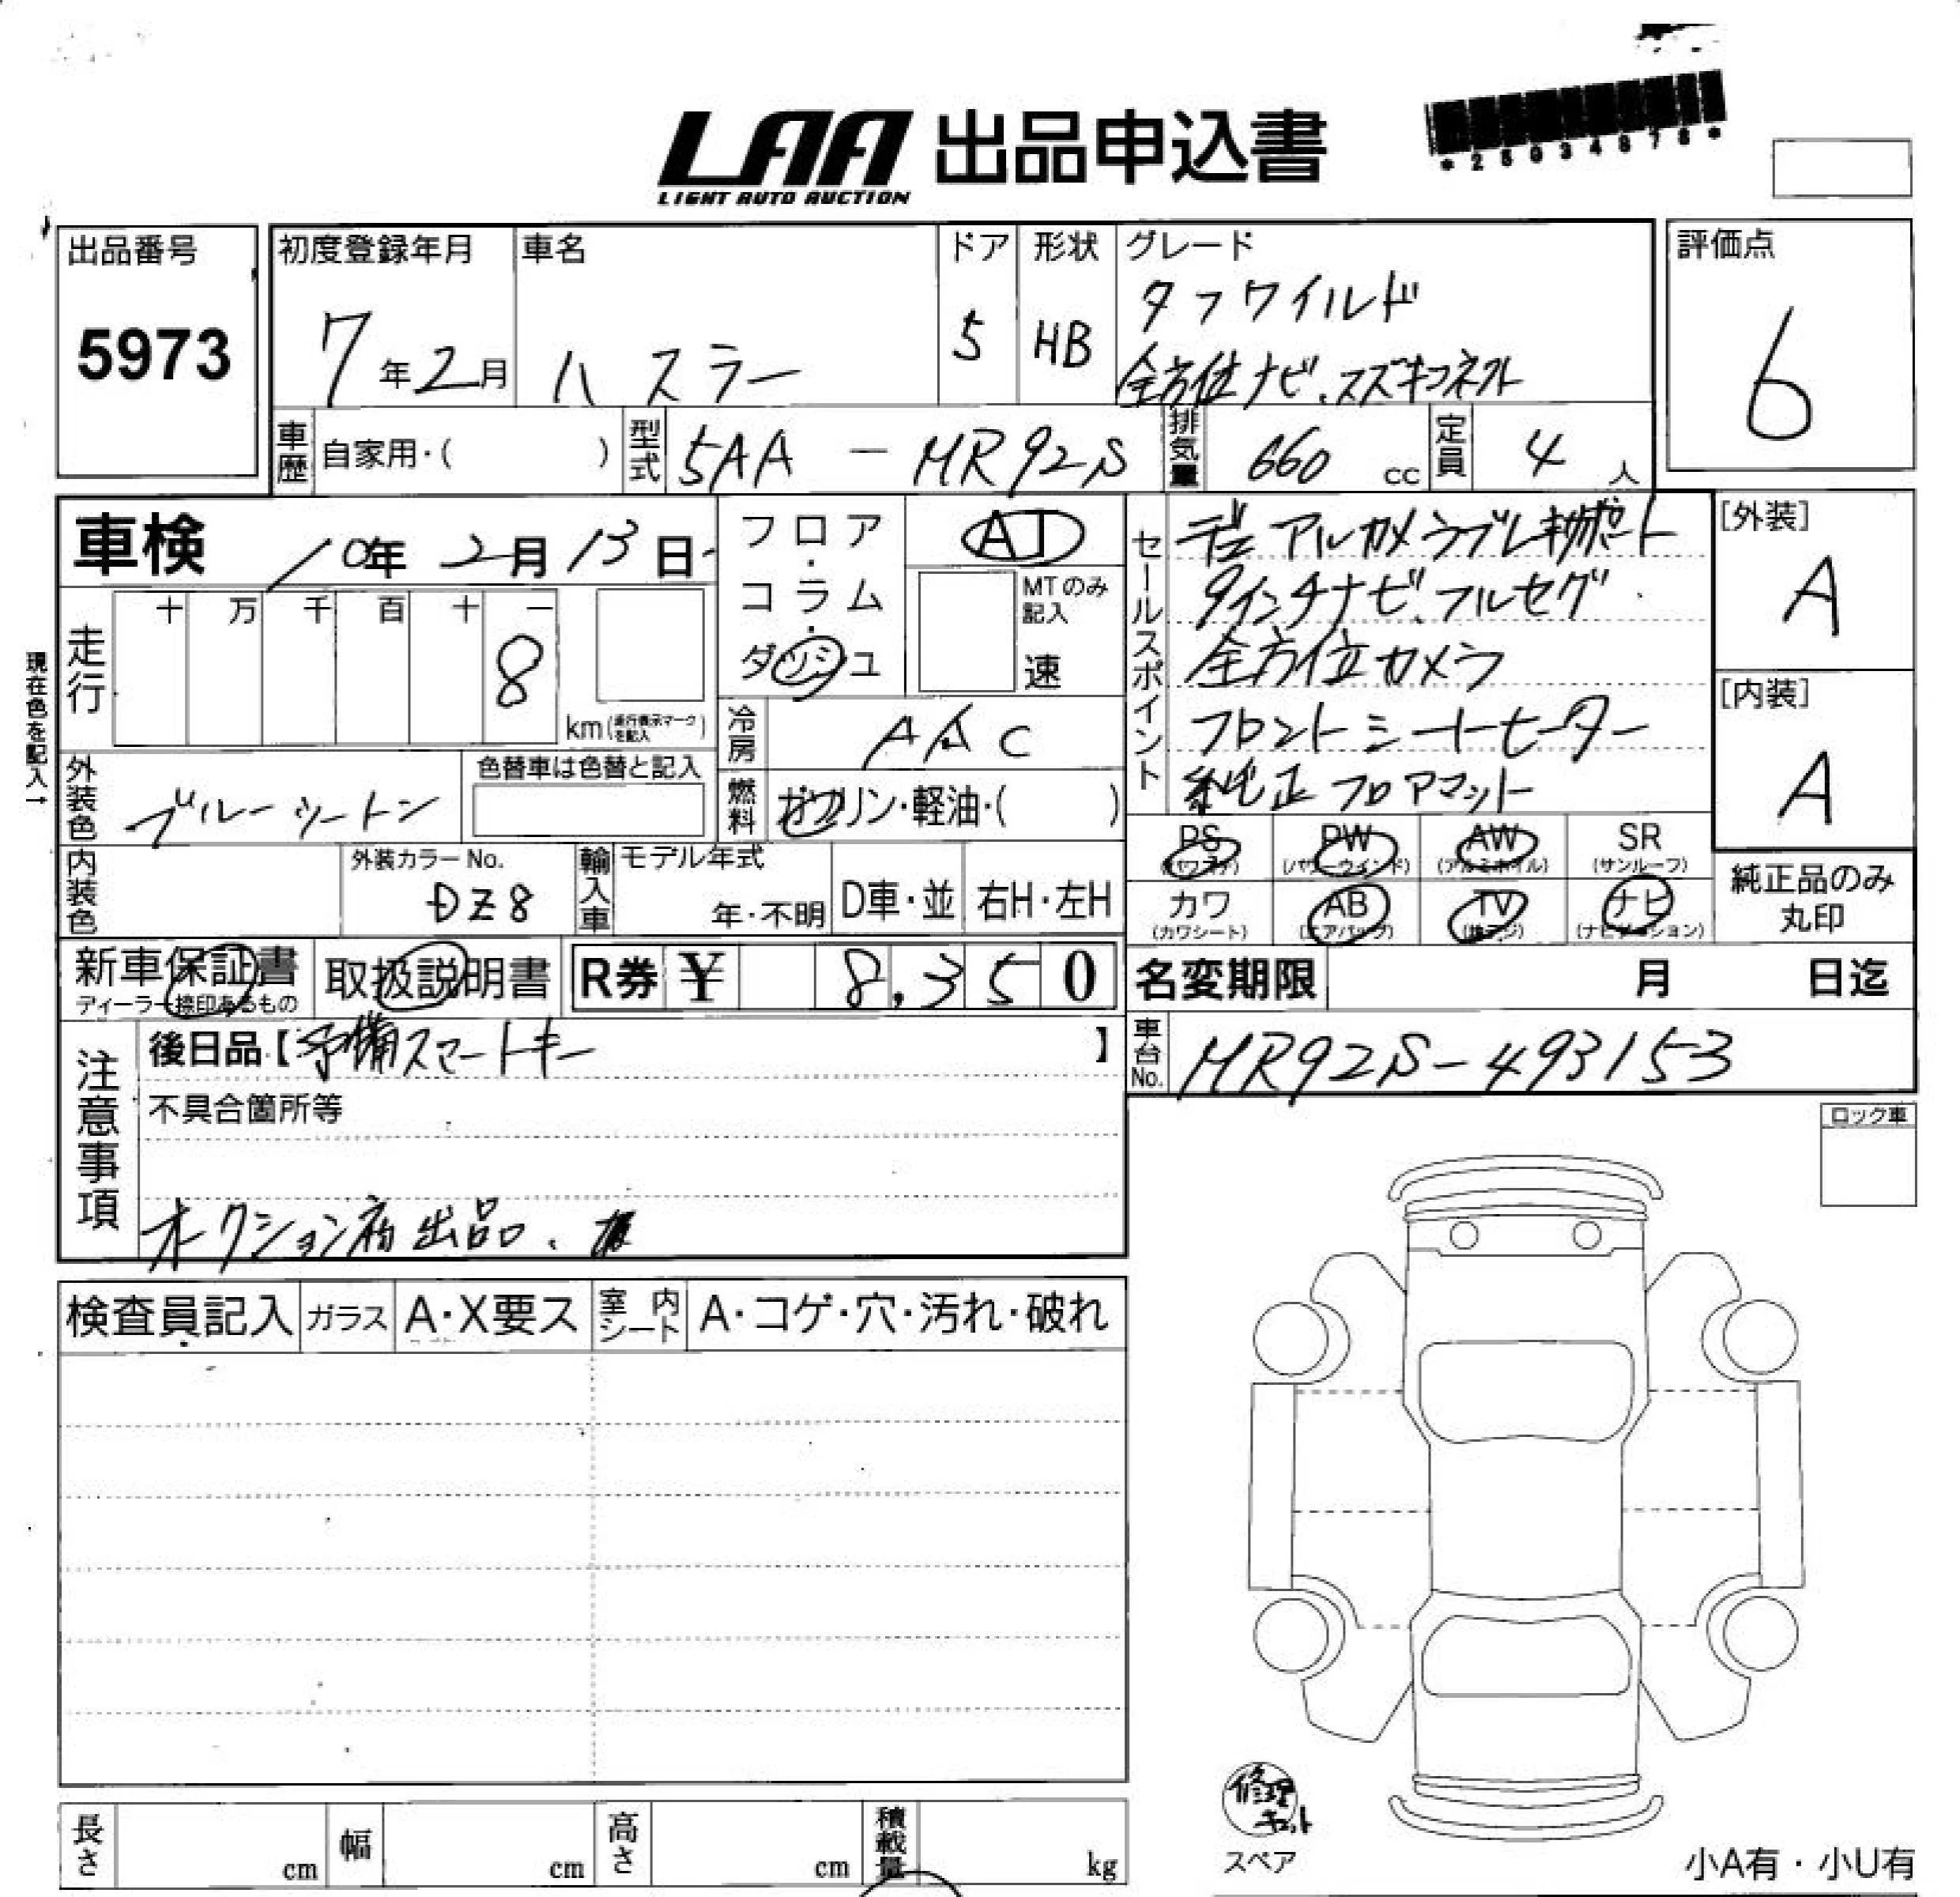 LAA 出品申込書
LIGHT AUTO AUCTION
*25034878*
出品番号
5973
初度登録年月
7年2月
車名
ハスラー
ドア
5
形状
HB
グレード
タフワイルド
全方位ナビ、スズキコネクト
評価点
6
車歴
自家用・( )
型式
5AA - MR92S
排気量
660 cc
定員
4 人
車検
10年 2月 13日
フロア・コラム・ダッシュ
AT
MTのみ記入
速
セールスポイント
デュアルカメラブレーキサポート
9インチナビ、フルセグ
全方位カメラ
フロントシートヒーター
純正フロアマット
[外装]
A
[内装]
A
現在色を記入→
走行
十 万 千 百 十 一
8
km(走行表示マークを記入)
冷房
AAC
燃料
ガソリン・軽油・( )
外装色
ブルーツートン
色替車は色替と記入
内装色
外装カラーNo.
DZ8
輸入車
モデル年式
年・不明
D車・並
右H・左H
PS
(パワステ)
PW
(パワーウインド)
AW
(アルミホイル)
SR
(サンルーフ)
カワ
(カワシート)
AB
(エアバッグ)
TV
ナビ
(ナビゲーション)
純正品のみ
丸印
新車保証書
ディーラー捺印あるもの
取扱説明書
R券 ¥ 8,350
名変期限 月 日迄
注意事項
後日品【予備スマートキー 】
不具合箇所等
オークション初出品、
車台No.
MR92S-493153
ロック車
検査員記入
ガラス
A・X要ス
室内シート
A・コゲ・穴・汚れ・破れ
修理キット
スペア
小A有・小U有
長さ cm
幅 cm
高さ cm
積載量 kg